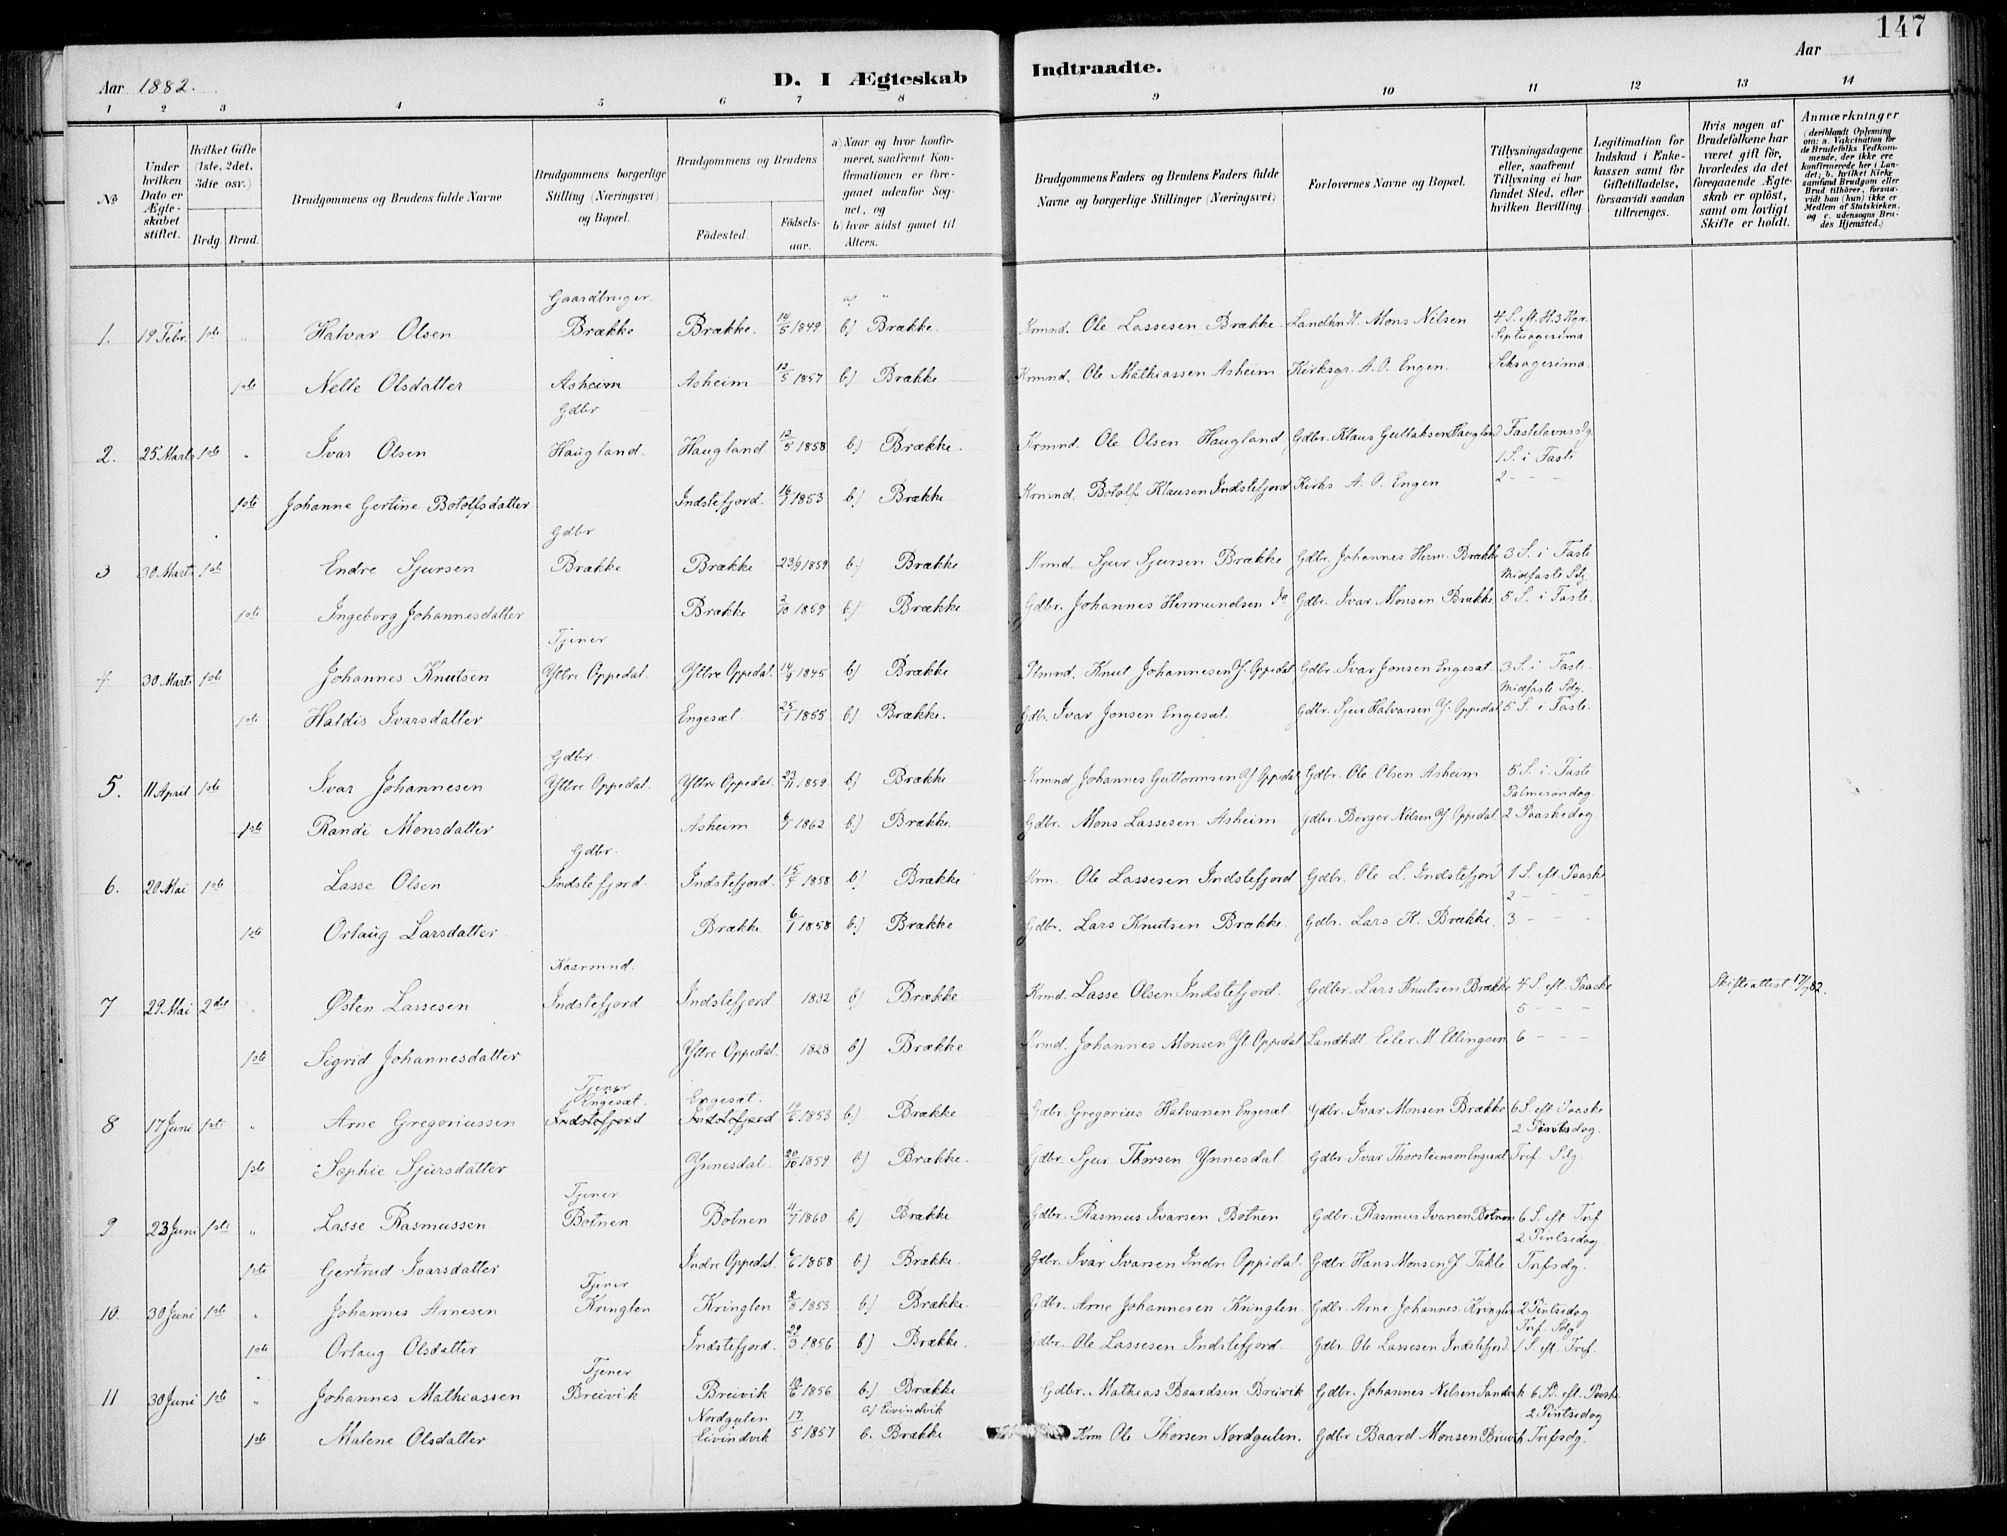 147
Aar 1882.
D. I Ægteskab Indtraadte.
Aar
1 2 3 4 5 6 7 8 9 10 11 12 13 14
No
Under hvilken Dato er Ægteskabet stiftet.
Hvilket Gifte (1ste, 2det, 3die osv.)
Brdg. Brud.
Brudgommens og Brudens fulde Navne
Brudgommens borgerlige Stilling (Næringsvei) og Bopæl.
Brudgommens og Brudens
Fødested.
Fødselsaar.
a) Naar og hvor konfirmeret, saafremt Konfirmationen er foregaaet udenfor Sognet, og
b) hvor sidst gaaet til Alters.
Brudgommens Faders og Brudens Faders fulde Navne og borgerlige Stillinger (Næringsvei)
Forlovernes Navne og Bopæl.
Tillysningsdagene eller, saafremt Tillysning ei har fundet Sted, efter hvilken Bevilling
Legitimation for Indskud i Enkekassen samt for Giftetilladelse, forsaavidt saadan tiltrænges.
Hvis nogen af Brudefolkene har været gift før, hvorledes da det foregaaende Ægteskab er opløst, samt om lovligt Skifte er holdt.
Anmærkninger
(deriblandt Oplysning om: a. Vakcination for de Brudefolks Vedkommende, der ikke ere konfirmerede her i Landet; b. hvilket Kirkesamfund Brudgom eller Brud tilhører, forsaavidt han (hun) ikke er Medlem af Statskirken, og c. udensogns Brudes Hjemsted.)
Gaardbruger a) "
1. 19 Febr. 1ste " Halvar Olsen Brække Brække. 14/5 1849 b) Brække. Krmnd. Ole Lassesen Brække Landhn H. Mons Nilsen 4 S. eft. H. 3 Kgr.
Septuagesima
1ste Nelle Olsdatter Asheim Asheim 12/5 1857 b) Brække Krmnd. Ole Mathiassen Asheim Kirksgr. A. O. Engen. Seksagesima.
Gdbr
2. 25 Marts 1ste " Ivar Olsen Haugland. Haugland 12/5 1858 b) Brække. Krmnd. Ole Olsen Haugland Gdbr. Klaus Guttaksen Haugland Fastelavnssdg.
1 S. i Faste
1ste Johanne Gertine Botolfsdatter Indstefjord. 16/7 1853 b) Brække Krmnd. Botolf Klausen Indstefjord Kirks A. O. Engen 2 - - -
Gdbr
3 30 Marts 1ste Endre Sjursen Brække Brække 23/9 1859 b) Brække Krmd. Sjur Sjursen Brække Gdbr. Johannes Herm. Brække 3 S. i Faste
Midfaste Sdg.
1ste Ingeborg Johannesdatter Brække 2/10 1859 b) Brække Gdbr. Johannes Hermundsen do Gdbr. Ivar Monsen Brække 5 S. i Faste.
Tjener
4 30 Marts 1ste Johannes Knutsen Yttre Oppedal. Yttre Oppedal. 14/9 1845 b) Brække Plmnd. Knut Johannesen Y. Oppedal Gdbr. Ivar Jonsen Engesæt 3 S. i Faste.
Midfaste Sdg.
1ste Haldis Ivarsdatter Engesæt. 25/1 1855 b) Brække. Gdbr. Ivar Jonsen Engesæt. Gdbr. Sjur Halvarsen Y. Oppedal 5 S. i Faste.
Gdbr
5. 11 April 1ste Ivar Johannesen Yttre Oppedal. Yttre Oppedal. 23/11 1859. b) Brække Krmnd Johannes Guttormsen Y Oppedal Gdbr. Ole Olsen Asheim 5 S. i. Faste
Palmesøndag.
1ste Randi Monsdatter Asheim 6/7 1862 b) Brække Gdbr. Mons Lassesen Asheim Gdbr. Børger Nilsen Y Oppedal 2 Paaskedag.
Gdbr.
6. 20 Mai 1ste Lasse Olsen Indstefjord. Indstefjord. 15/7 1858 b) Brække Krm. Ole Lassesen Indstefjord Gdbr. Ole L. Indstefjord 1 S. eft Paaske
2 - - -
1ste Orlaug Larsdatter Brække. 6/1 1858 b.) Brække Gdbr. Lars Knutsen Brække. Gdbr. Lars K. Brække. 3 - - -
Kaarmnd.
7 29 Mai 2det " Østen Lassesen Indstefjord Indstefjord 1832 b) Brække Krmd. Lasse Olsen Indstefjord. Gdbr. Lars Knutsen Brække 4 S. eft. Paaske Skifteattest 17/782.
5 - - -
1ste Sigrid Johannesdatter Yttre Oppedal. 1828 b) Brække Krmd. Johannes Monsen Yt. Oppedal Landhdl. Eiler M. Ellingsen 6 - - -
Tjener
Engesæt. Engesæt.
8 17 Juni 1ste " Arne Gregoriussen Indstefjord Indstefjord 19/6 1853 b) Brække Gdbr. Gregorius Halvarsen Engesæt Gdbr. Ivar Monsen Brække 6 S. eft Paaske
2 Pintsdag.
1ste Sophie Sjursdatter Ynnesdal. 20/10 1859 b) Brække. Gdbr. Sjur Thorsen Ynnesdal Gdbr Ivar Thorsteinson Engesæt Trif. Sdg.
Tjener
9 23 Juni 1ste " Lasse Rasmussen Botnen Botnen 4/7 1860 b) Brække Gdbr. Rasmus Ivarsen Botnen Gdbr. Rasmus Ivarsen Botnen 6 S. eft Trif
2 Pintsedag
1ste Gertrud Ivarsdatter Indre Oppedal 6/6 1858 b) Brække. Gdbr. Ivar Ivarsen Indre Oppedal. Gdbr. Hans Monsen Y Takle Trifsdg.
Tjener
10. 30 Juni 1ste " Johannes Arnesen Kringlen Kringlen 2/8 1853 b.) Brække. Gdbr. Arne Johannesen Kringlen. Gdbr. Arne Johannes. Kringlen 2 Pintsedag
Trif. Sdg
1ste Orlaug Olsdatter Indstefjord. 29/3 1856 b) Brække. Gdbr. Ole Lassesen Indstefjord. Gdbr. Ole Lassesen Indstefjord. 1 S. eft. Trif.
Tjener
11 30 Juni 1ste " Johannes Mathiassen Breivik Breivik 10/6 1856 b.) Brække Gdbr. Mathias Baardsen Breivik Gdbr. Johannes Nelsen Sandvik 6 S. eft. Paaske
Nordgulen a) Eivindvik 2 Pintsedag
1ste Malene Olsdatter Eivindvik 17/5 1857 b. Brække Krm Ole Thorsen Nordgulen. Gdbr Baard Monsen Breivik Trifsdg.